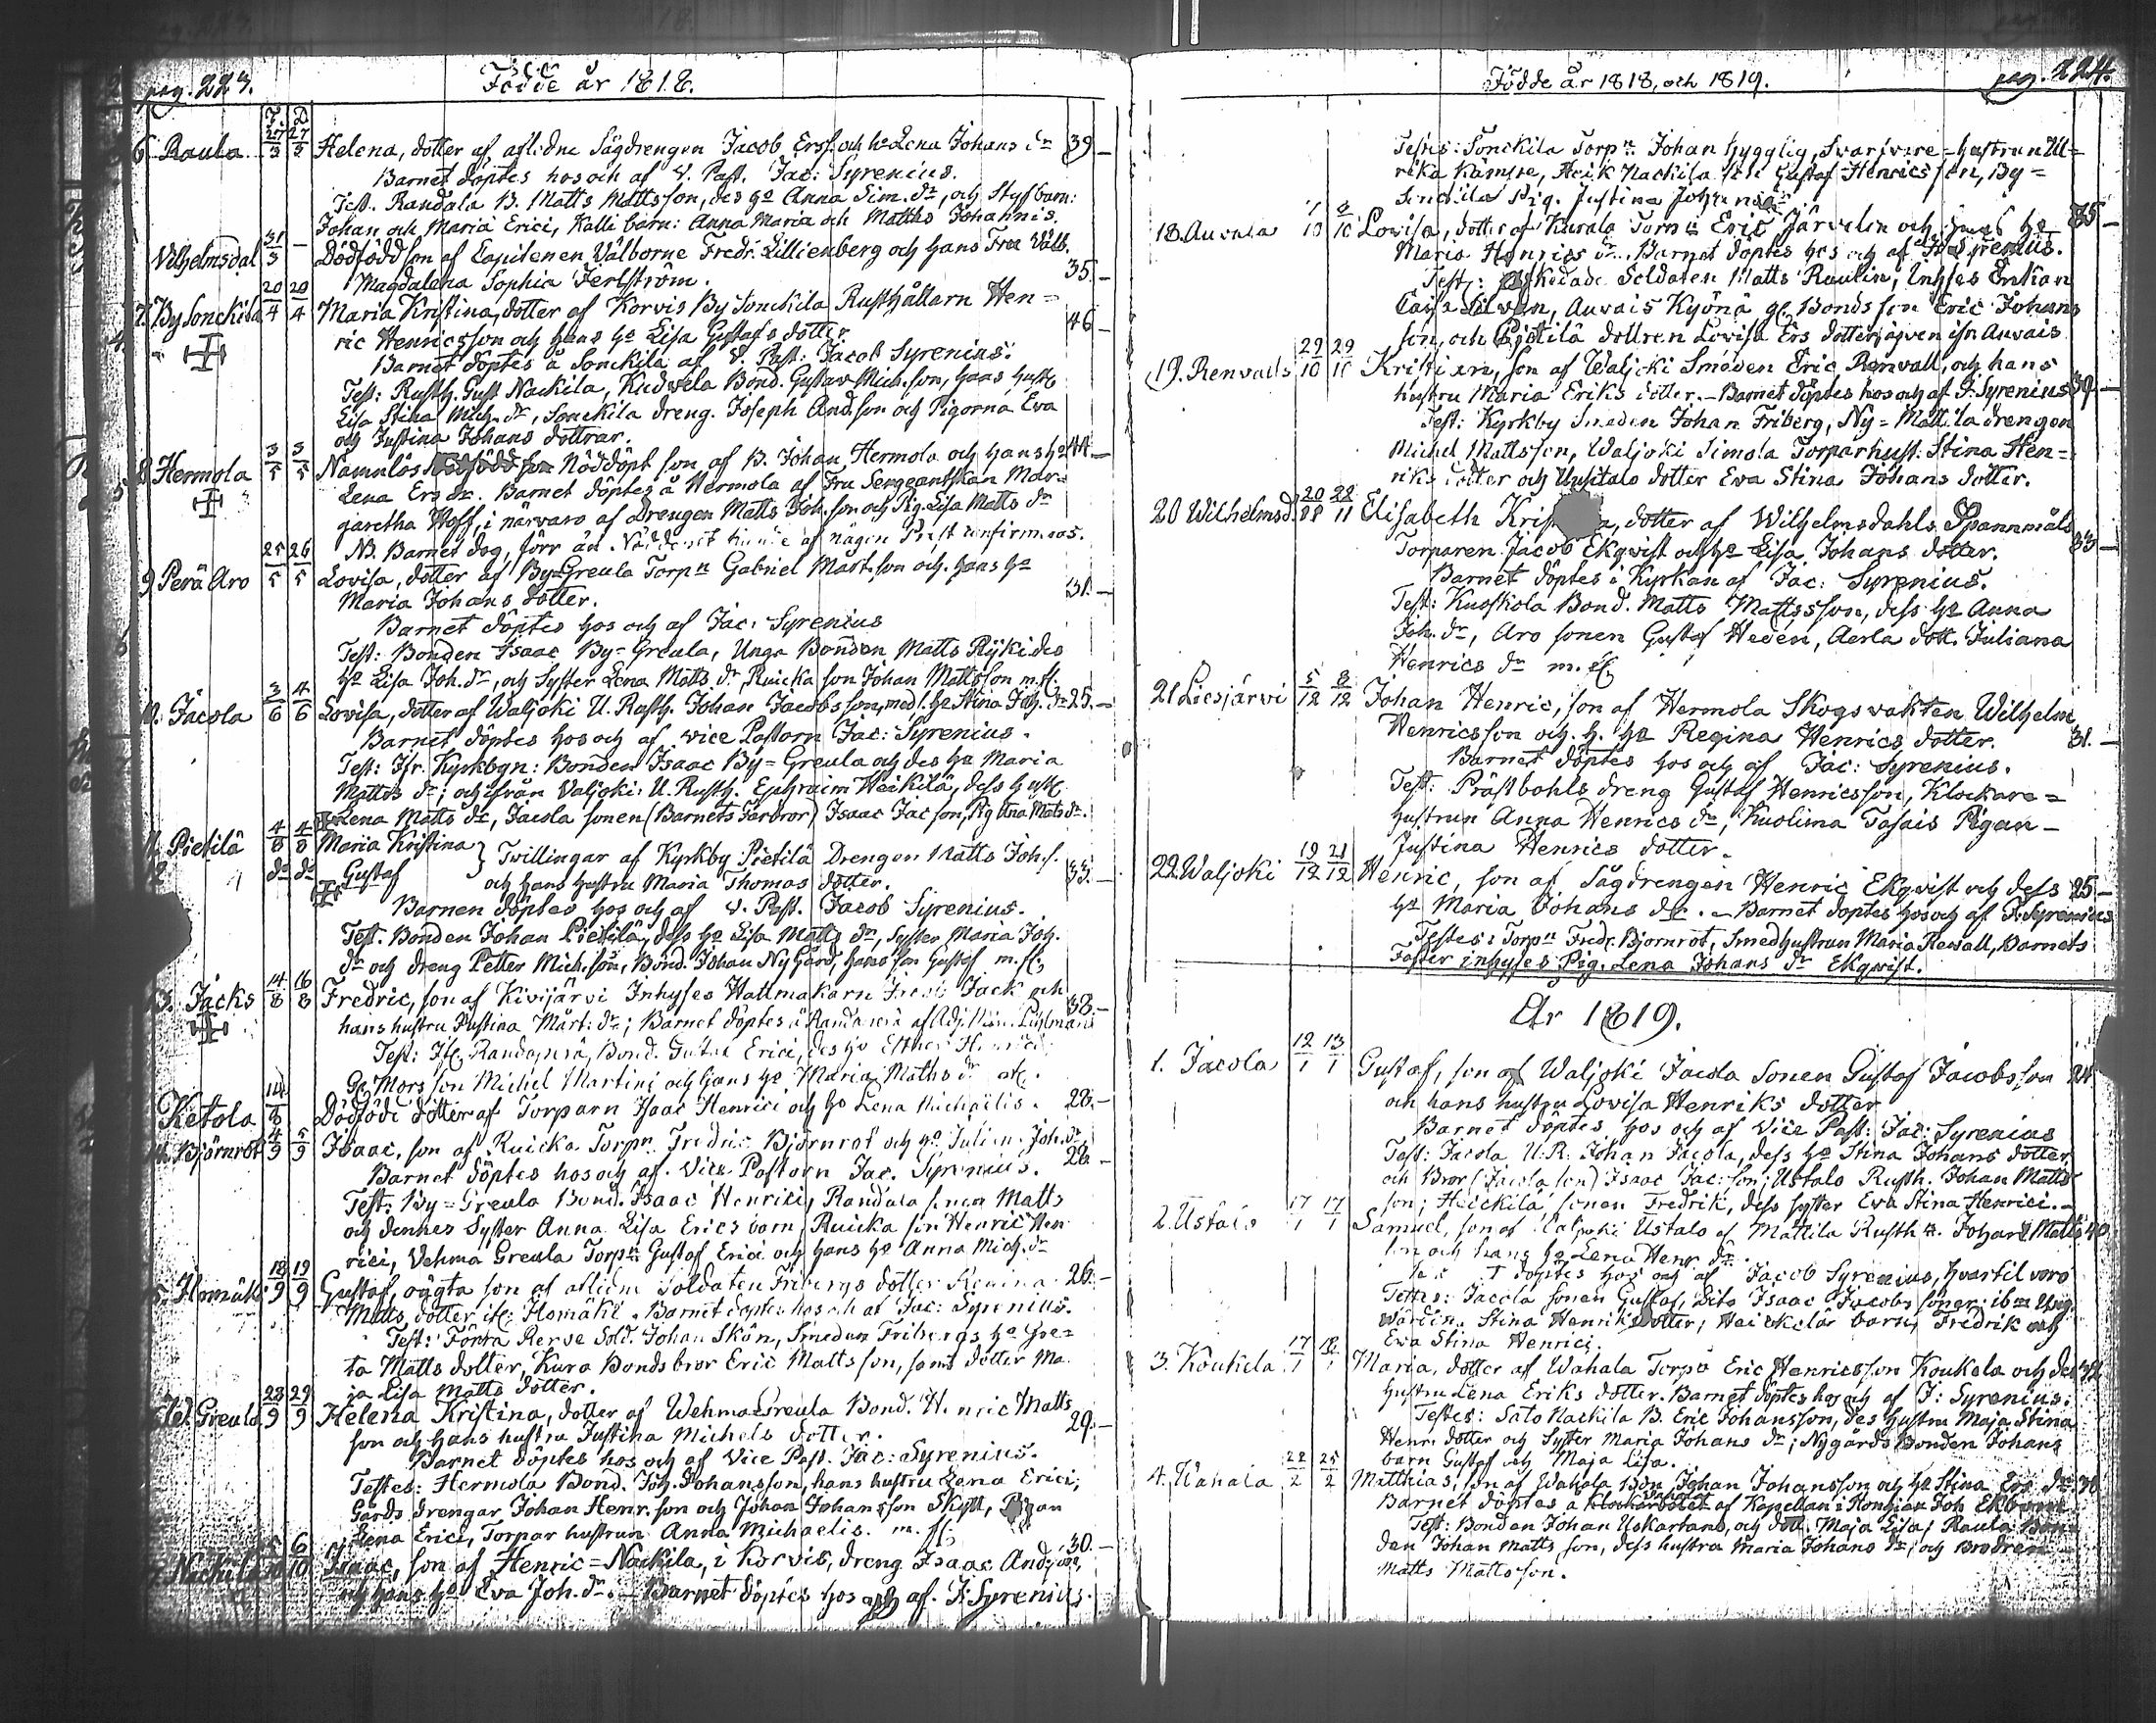 pag. 223.
Födde år 1818.
F. D.
6 Raula 27/3 27/3 Helena, dotter af aflidne Sågdrengen Jacob Ersf. och ha Lena Johans dr 39.—
Barnet döptes hos och af V. Past. Jac: Syrenius.
Test. Randala B. Matts Mattsson, des ha Anna Sim. dr, och Styfbarn:
Johan och Maria Erici, Kalli barn: Anna Maria och Matths Johannis.
Vilhelmsdal 31/3 — Dödfödd son af Capitenen Välborne Fredr. Lillienberg och hans Fru Välb.
Magdalena Sophia Jerlström. 35.—
7. By Sonckila 20/4 20/4 Maria Kristina, dotter af Korvis By Sonckila Rusthållarn Hen=
ric Henricsson och hans ha Lisa Gustafs dotter. 46—
Barnet döptes å Sonckila af V. Past: Jacob Syrenius.
Test: Rusth. Gust Nackila, Kudvela Bond. Gustav Mich. son, hans hust:
Lisa Stina Mich. dr, Sonckila dreng. Joseph And. son och Pigorna Eva
och Justina Johans dottrar.
8 Hermola 3/5 3/5 Namnlös Nöddöpt son af B. Johan Hermola och hans ha 44—
Lena Ers dr. Barnet döptes å Hermola af Fru Sergeantskan Mar-
garetha Hoff, i närvaro af Drengen Matts Joh. son och Pig. Lisa Matts dr
NB. Barnet dog, förr än Nöddopet kunde af någon Prest confirmeras.
9 Perä Aro 25/5 26/5 Lovisa, dotter af By-Greula Torpn Gabriel Mart. son och hans ha
Maria Johans dotter. 31.—
Barnet döptes hos och af Jac: Syrenius
Test: Bonden Isaac By-Greula, Unga Bonden Matts Ryki des
ha Lisa Joh. dr, och Syster Lena Matts dr, Ruicka son Johan Mattsson m. fl.
10. Jacola 3/6 4/6 Lovisa, dotter af Waljoki U. Rusth. Johan Jacobsson, med. ha Stina Joh. dr 25.—
Barnet döptes hos och af vice Pastorn Jac: Syrenius.
Test: Ifr. Kyrkbyn: Bonden Isaac By=Greula och des ha Maria
Matts dr; och ifrån Valjoki: U. Rusth. Ephraim Heikilä, dess hust:
Lena Matts dr, Jacola sonen (Barnets Farbror) Isaac Jac son, Pig Ana Mats dr.
11. Pietilä 4/8 4/8 Maria Kristina
12 do do Gustaf } Tvillingar af Kyrkby Pietilä Drengen Matts Joh. s.
och hans hustru Maria Thomas dotter. 33.—
Barnen döptes hos och af V. Past. Jacob Syrenius.
Test. Bonden Johan Pietilä, dess ha Lisa Matts dr, Syster Maria Joh.
dr och dreng Petter Mich. son, Bond. Johan Ny Gård, hans son Gustaf m. fl.
13. Jacks 14/8 16/8 Fredric, son af Kivijärvi Inhyses Hattmakarn Fredr Jack och
hans hustru Justina Mårt: dr; Barnet döptes å Randanperä af Adj. 38.—
Test: Randanperä, Bond. Gustaf Erici, des ha Esther
Mors son Michel Martini och hans ha Maria Matts dr etc.
Ketola 14/8 Dödfödd dotter af Torparn Isaac Henrici och ha Lena Michaelis. 28.—
14. Björnrot 4/9 5/9 Isaac, son af Ruicka Torpn Fredric Björnrot och ha Julian. Joh. dr
Barnet döptes hos och af Vice Pastorn Jac. Syrenius. 28.—
Test: By=Greula Bond. Isaac Henrici, Randala sonen Matts
och dennes Syster Anna Lisa Erics barn, Ruicka son Henric Hen-
rici, Vehma Greula Torpn Gustaf Erici och hans ha Anna Mich. dr
15. Homäki 18/9 19/9 Gustaf, oägta son af aflidne Soldaten Fribergs dotter Regina 26.—
Matts dotter, Homäki. Barnet döptes hos och af Jac: Syrenius.
Test: Förra Reserve Sold. Johan Skön, Smeden Fribergs ha Gre-
ta Matts dotter, Kura Bonds bror Eric Mattsson, samt dotter Ma-
ja Lisa Matts dotter.
16. W. Greula 28/9 29/9 Helena Kristina, dotter af Wehma Greula Bond. Henric Matts
son och hans hustru Justina Michels dotter. 29.—
Barnet döptes hos och af Vice Past. Jac: Syrenius.
Testes: Hermola Bond. Joh. Johansson, hans hustru Lena Erici;
Gårds drengar Johan Henr. son och Johan Johansson Skytt, Pigan
Lena Erici, Torpar hustrun Anna Michaelis. m. fl.
17. Nackila 5/10 6/10 Isaac, son af Henric=Nackila, i Korvis, dreng Isaac And. son, 30.—
och hans ha Eva Joh. dr. — Barnet döptes hos och af J: Syrenius.
Födde år 1818, och 1819.
pag. 224.
Testes: Sonckila Torpn Johan Hygglig, Svarfvare=hustrun Ul=
rika Kämpe, Heik Nackila son Gustaf Henricsson, By=
Sonckila Pig. Justina Johans dr
18. Auvala 7/10 8/10 Lovisa, dotter af Kurala Torpn Eric Järvelin och hans ha 35—
Maria Henrics dr. Barnet döptes hos och af J: Syrenius.
Test: Afskedade Soldaten Matts Raulin, Inhyses Enkan
Caisa, Auvais Kyönä gl. Bonds son Eric Johans
son, och Pietilä dottren Lovisa Ers dotter, även ifr. Auvais
19. Renvalls 29/10 29/10 Kristian, son af Waljoki Smeden Eric Renvall, och hans
hustru Maria Eriks dotter. — Barnet döptes hos och af J: Syrenius 39.—
Test: Kyrkby Smeden Johan Friberg, Ny=Mattila drengen
Michel Mattsson, Waljoki Simola Torparhust. Stina Hen=
riks dotter och Uusitalo dotter Eva Stina Johans dotter.
20 Wilhelmsd. 20/11 22/11 Elisabeth, dotter af Wilhelmsdahls Spannmåls
Torparen Jacob Ekqvist och ha Lisa Johans dotter. 33—
Barnet döptes i Kyrkan af Jac: Syrenius.
Test: Kuoskola Bond. Matts Mattsson, dess ha Anna
Joh. dr, Aro sonen Gustaf Heden, Aerla dott. Juliana
Henrics dr m. fl.
21 Liesjärvi 5/12 8/12 Johan Henric, son af Hermola Skogsvakten Wilhelm
Henricsson och h. ha Regina Henrics dotter. 31.—
Barnet döptes hos och af Jac: Syrenius.
Test: Prästbohls dreng Gustaf Henricsson, Klockare=
hustrun Anna Henrics dr, Kuolima Tasais Pigan—
Justina Henrics dotter.
22 Waljoki 19/12 21/12 Henric, son af Sågdrengen Henric Ekqvist och dess 25—
ha Maria Johans dr. — Barnet döptes hos och af J. Syrenius
Testes: Torpn Fredr. Björnrot, Smedhustrun Maria Rewall, Barnets
Faster inhyses Pig. Lena Johans dr Ekqvist.
År 1819.
1. Jacola 12/1 13/1 Gustaf, son af Waljoki Jacola Sonen Gustaf Jacobsson 24
och hans hustru Lovisa Henriks dotter
Barnet döptes hos och af Vice Past: Jac: Syrenius
Test: Jacola U. R. Johan Jacola, dess ha Stina Johans dotter,
och Bror (Jacola son) Isaac Jac: son; Ustalo Rusth. Johan Matts
son; Heickilä sonen Fredrik, dess syster Eva Stina Henrici.—
2. Ustalo 17/1 17/1 Samuel, son af Valjoki Ustalo af Mattila Rusthn. Johan Matts 40
son och hans ha Lena Henr. dr.
Barnet döptes hos och af Jacob Syrenius, hvartil voro
Testes: Jacola sonen Gustaf, dito Isaac Jacobs söner: ibm
Stina Henriksdotter, Heickilä barn, Fredrik och
Eva Stina Henrici.
3. Koukela 17/1 18/1 Maria, dotter af Wahala Torpa Eric Henricsson Koukela och des
hustru Lena Eriks dotter. Barnet döptes hos och af J: Syrenius:
Testes: Sato Nackila B. Eric Johansson, des hustru Maja Stina
Henr. dotter och Syster Maria Johans dr; Nygårds Bonden Johans
barn Gustaf och Maja Lisa.
4. Wahala 22/2 25/2 Matthias, son af Wahala Bon. Johan Johansson och ha Stina Ers dr 30
Barnet döptes å af Kapellan i Honghia Joh Ekbom
Test: Bonden Johan Uskartano, och dott. Maja Lisa; Raula Bon=
den Johan Matts son, dess hustru Maria Johans dr, och Brodren
Matts Mattsson.